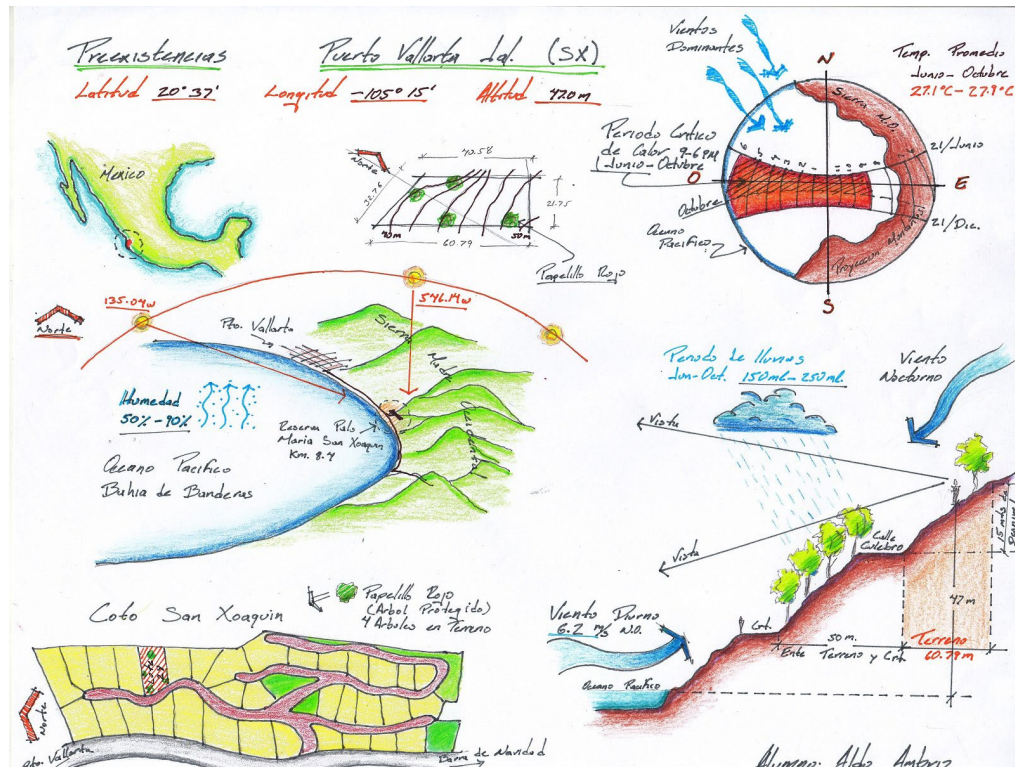 Preexistencias
Puerto Vallarta Jal. (SX)
Latitud 20° 37'
Longitud -105° 15'
Altitud 47.0 m
Vientos
Dominantes
N
Temp. Promedio
Junio - Octubre
27.1°C - 27.9°C
Sierra M.O.
Periodo Critico
de Calor 9-6 PM
Junio-Octubre
21/Junio
O
E
Octubre
21/Dic.
Oceano
Pacifico
Proyeccion Montañas
S
Mexico
Norte
40.58
32.76
21.75
40m
50m
60.79
Papelillo Rojo
135.04w
546.14w
Norte
Pto. Vallarta
Sierra
Madre
Occidental
Humedad
50% - 90%
Reserva Palo
Maria San Xoaquin
Km. 8.4
Oceano Pacifico
Bahia de Banderas
Periodo de lluvias
Jun-Oct. 150ml - 250ml.
Viento
Nocturno
Vista
Vista
Calle
Culebro
15 mts de
47 m
Viento Diurno
6.2 m/s N.O.
Crt.
50 m.
Ente Terreno y Crt.
Terreno
60.79 m
Oceano Pacifico
Papelillo Rojo
(Arbol Protegido)
4 Arboles en Terreno
Coto San Xoaquin
Norte
Pto. Vallarta
Barra de Navidad
Alumno: Aldo Ambriz